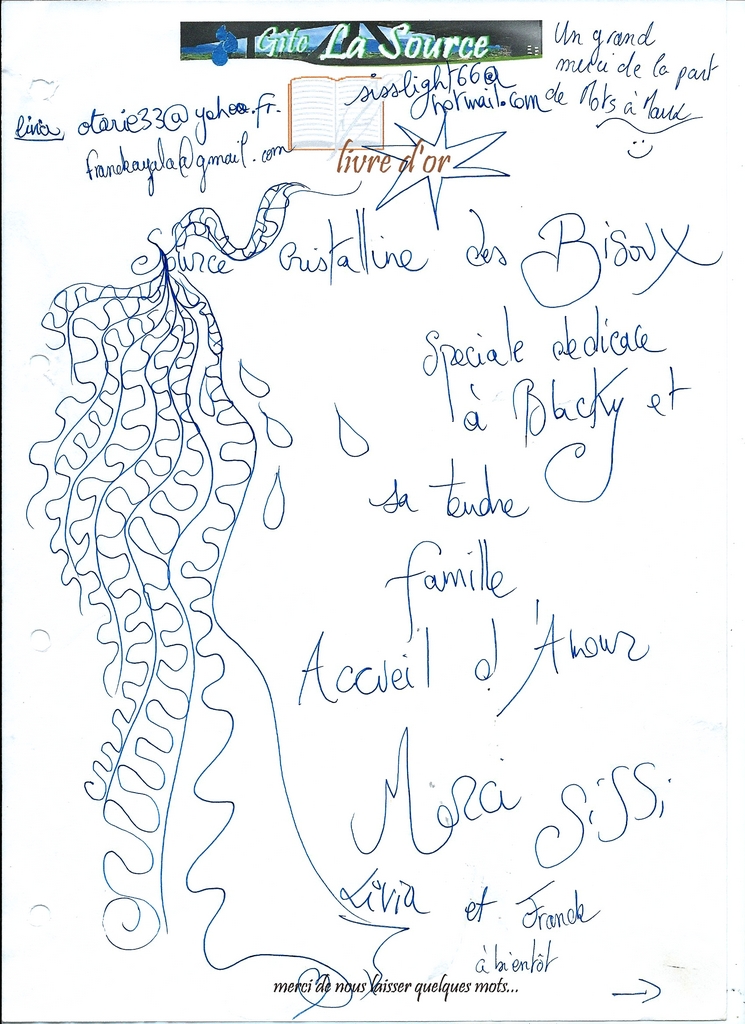 Gîte La Source
Un grand
merci de la part
de Mots à Maux
sisslight66@
hotmail.com
livia otarie33@yahoo.fr.
franckayala@gmail.com
livre d'or
Source cristalline des Bisoux
Speciale dedicace
à Blacky et
sa tendre
famille
Accueil d'Amour
Merci SiSSi
Livia et Franck
à bientôt
merci de nous laisser quelques mots...